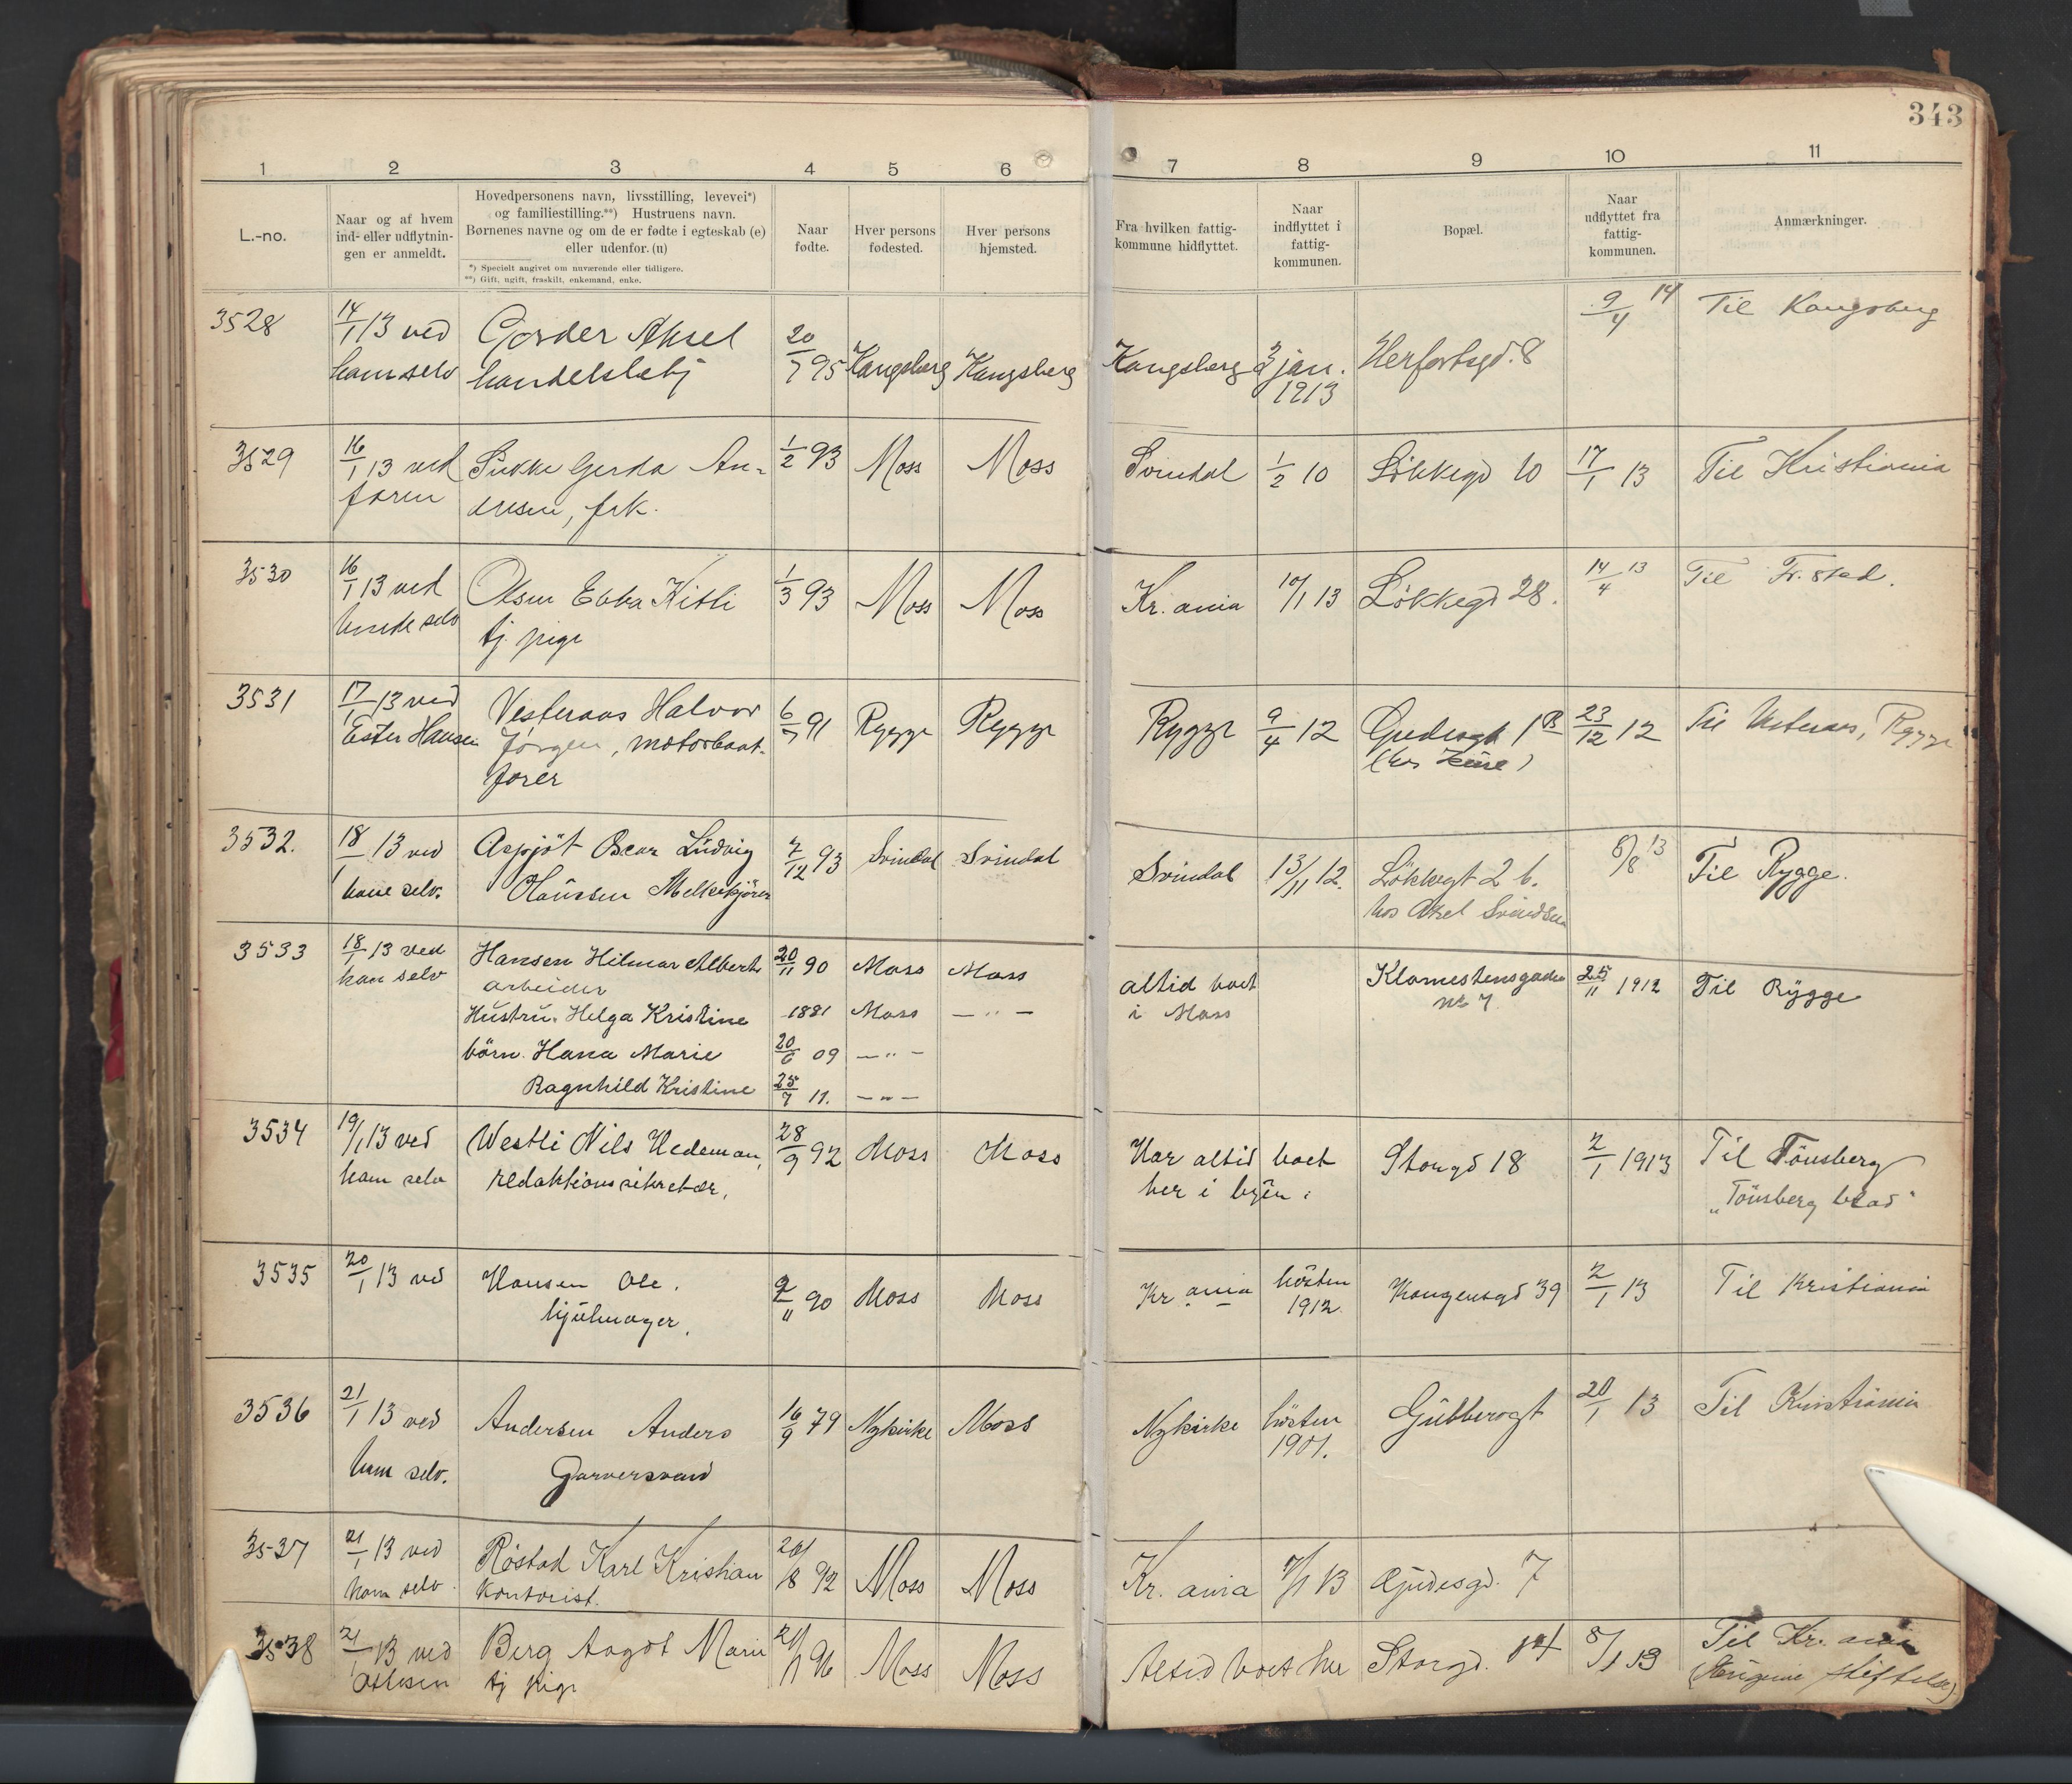 343
1 2 3 4 5 6 7 8 9 10 11
L.-no.
Naar og af hvem
ind- eller udflytnin-
gen er anmeldt.
Hovedpersonens navn, livsstilling, levevei*)
og familiestilling.**) Hustruens navn.
Børnenes navne og om de er fødte i egteskab (e)
eller udenfor. (u)
*) Specielt angivet om nuværende eller tidligere.
**) Gift, ugift, fraskilt, enkemand, enke.
Naar
fødte.
Hver persons
fødested.
Hver persons
hjemsted.
Fra hvilken fattig-
kommune hidflyttet.
Naar
indflyttet i
fattig-
kommunen.
Bopæl.
Naar
udflyttet fra
fattig-
kommunen.
Anmærkninger.
3528 14/1 13 ved Aksel 20/7 95 Kongsberg Kongsberg Kongsberg jan. 8 9/4 14 Til Kongsberg
ham selv 1913
3529 16/1 13 ved Gerda An- 1/2 93 Moss Moss Svindal 1/2 10 Løkkegd 10 17/1 13 Til Kristiania
dersen, frk.
3530 16/1 13 ved Olsen Ebba 1/3 93 Moss Moss Kr.ania 10/1 13 Løkkegd 28. 14/4 13 Til Fr.stad.
hende selv tj. pige
3531 17/1 13 ved Vesteraas Halvor 6/7 91 Rygge Rygge Rygge 9/4 12 1B 23/12 12 Til Vesteraas, Rygge
Ester Hansen Jørgen, motorbaat-
fører
3532. 18/1 13 ved Oscar Ludvig 7/12 93 Svindal Svindal Svindal 13/11 12. Løkkegt 2 b. 6/8 13 Til Rygge.
ham selv. Melkekjører hos Aksel Svindsen
3533 18/1 13 ved Hansen Hilmar Albert 20/11 90 Moss Moss altid boet 25/11 1912 Til Rygge
ham selv arbeider i Moss no 7
Hustru. Helga Kristine 1881 Moss — " —
børn. Hana Marie 20/6 09 — " —
Ragnhild Kristine 25/7 11. — " —
3534 19/1 13 ved Westli Nils Hedeman, 28/9 92 Moss Moss Har altid boet Storgd 18 2/1 1913 Til Tønsberg
ham selv redaktionssekretær. her i byen. "Tønsberg blad"
3535 20/1 13 ved Hansen Ole. 9/11 90 Moss Moss Kr ania høsten Kongensgd 39 2/1 13 Til Kristiania
hjulmager. 1912.
3536 21/1 13 ved Andersen Anders 16/9 79 Nykirke Moss Nykirke høsten 20/1 13 Til Kristiania
ham selv. Garversvend 1901.
3537 21/1 13 ved Røstad Karl Kristian 20/8 92 Moss Moss Kr. ania 7/1 13 Gudesgd. 7
ham selv. Kontorist.
3538 21/1 13 ved Berg Aagot Marie 96 Moss Moss Altid boet her Storgd. 8/1 13 Til Kr. ania
tj pige